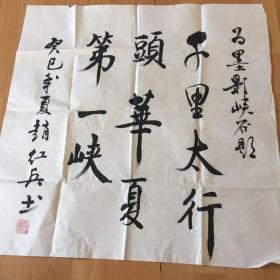 为墨影峡谷题
千里太行
頭華夏
第一峡
癸巳年夏趙红兵书